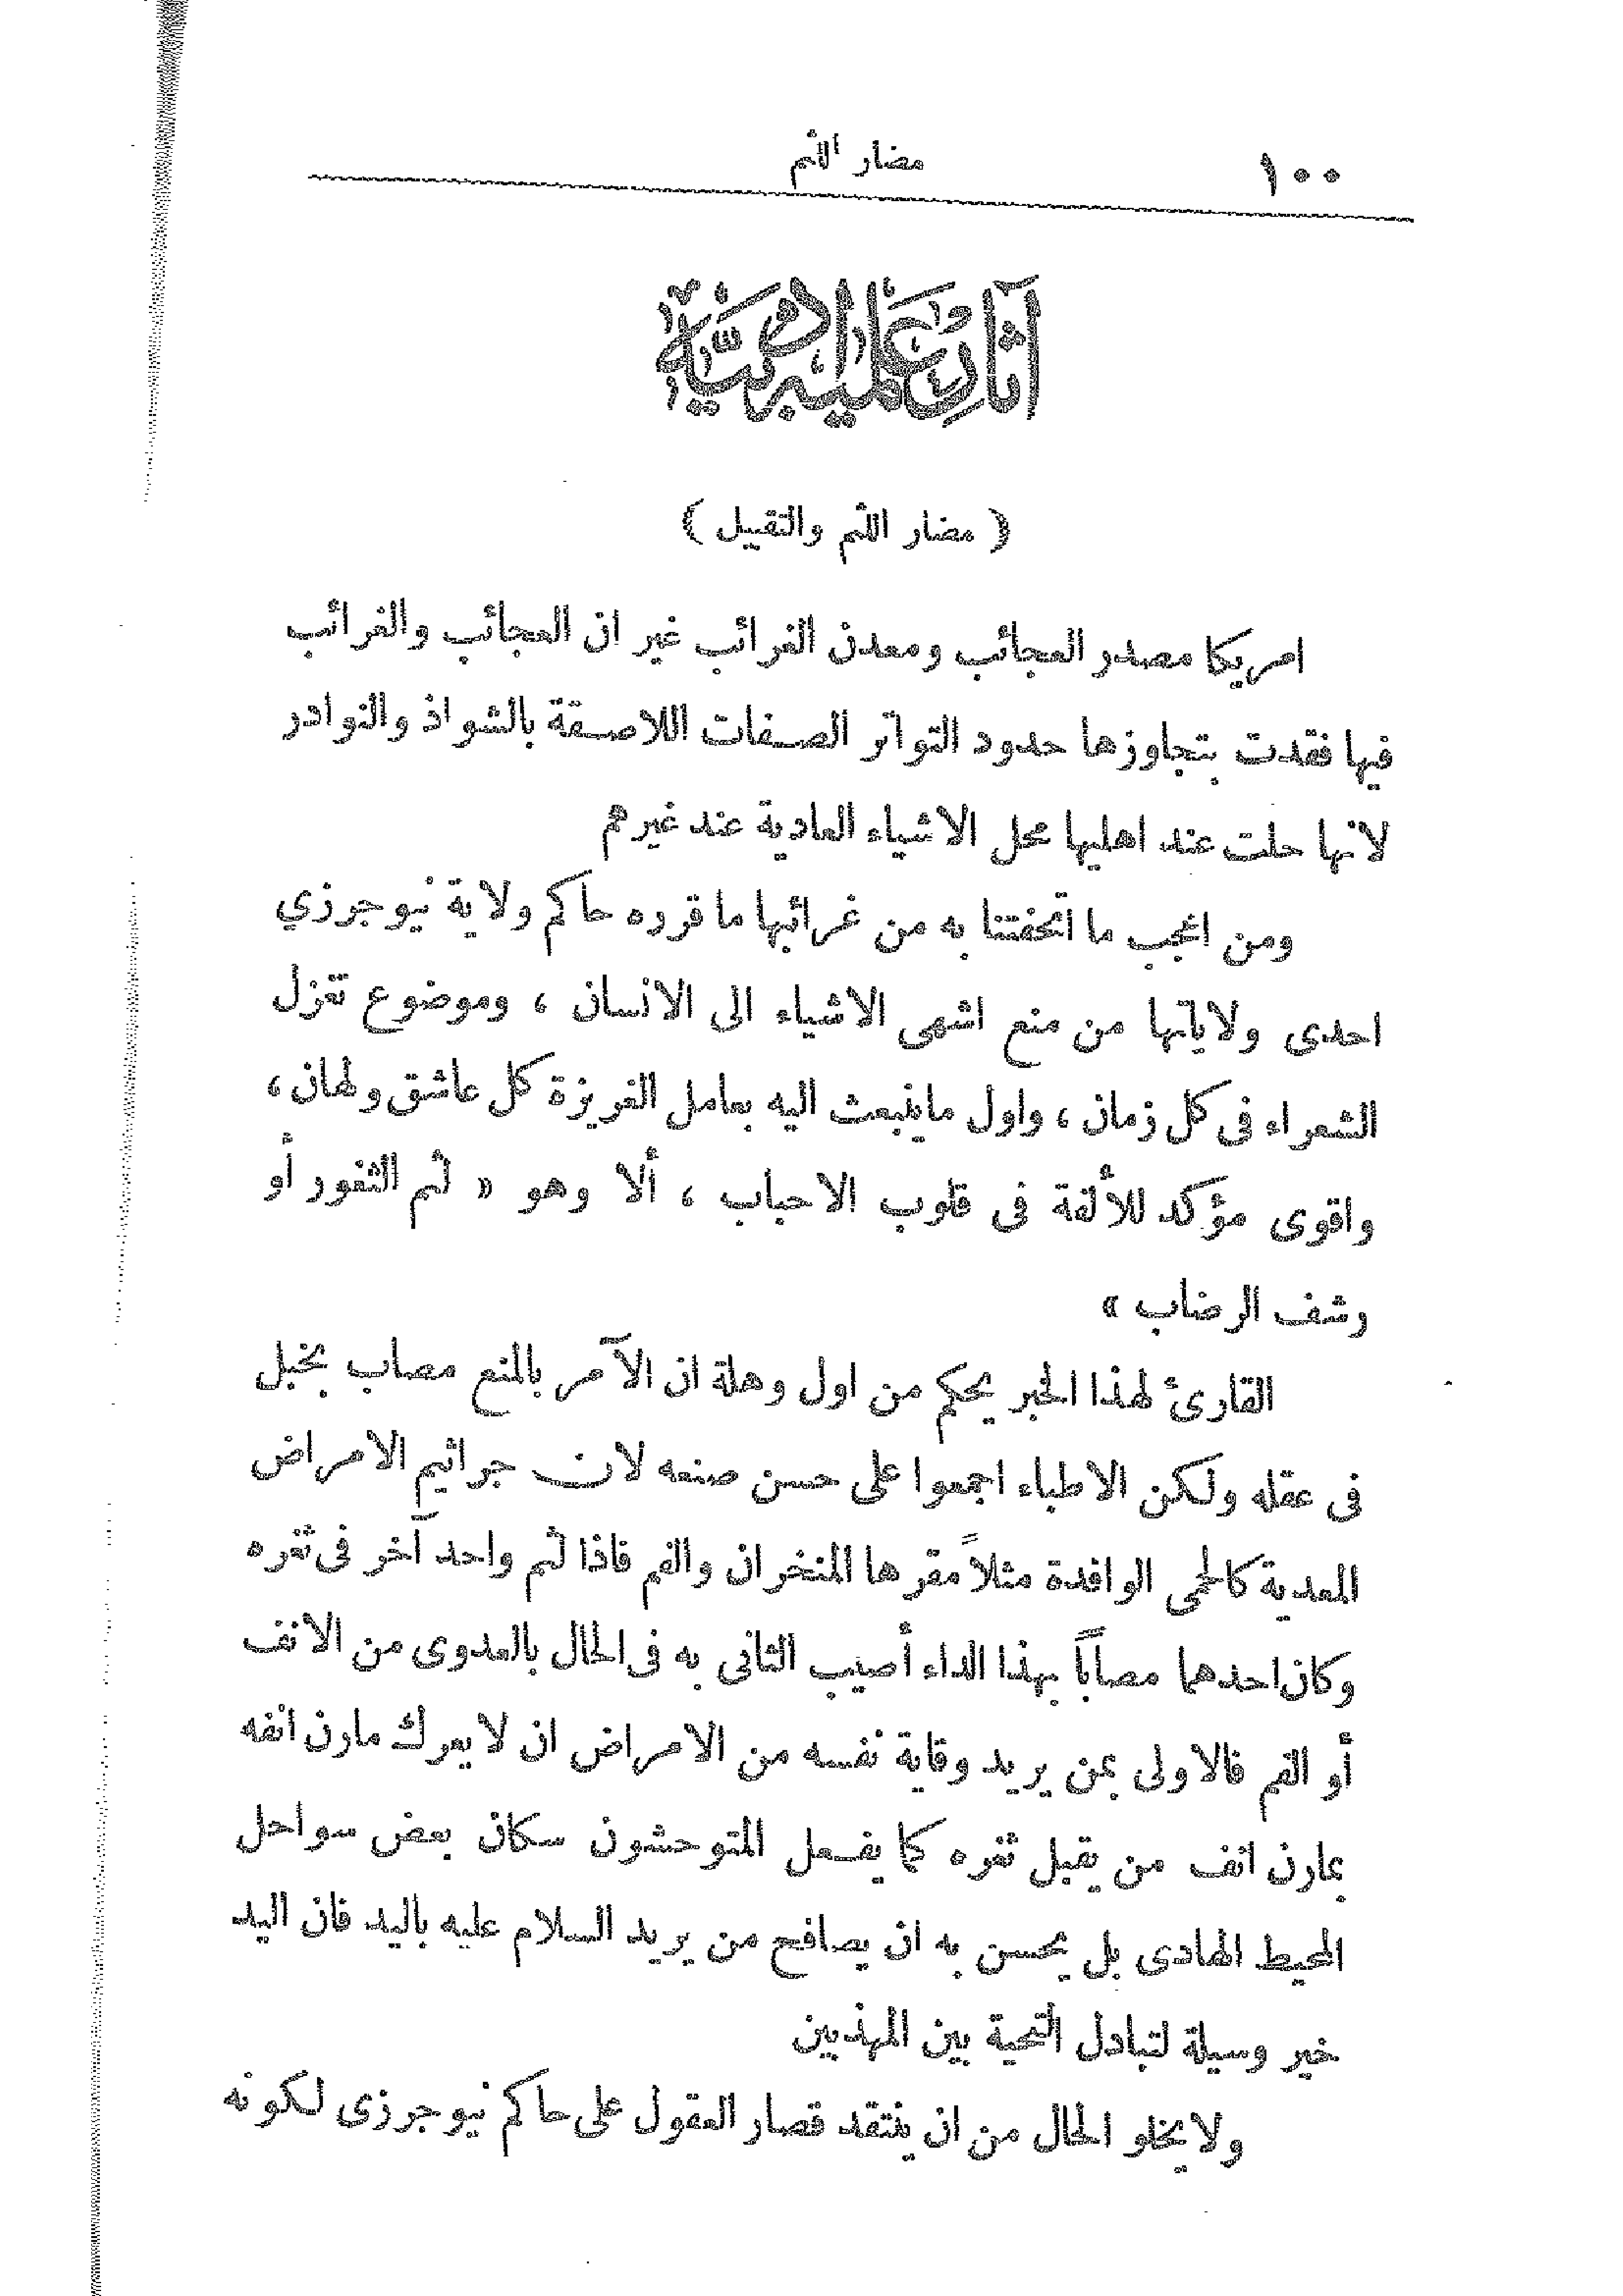 ١٠٠ مضار اللثم
آثار علمية أدبية
( مضار اللثم والتقبيل )
امريكا مصدر العجائب ومعدن الغرائب غير ان العجائب والغرائب
فيها فقدت بتجاوزها حدود التواتر الصفات اللاصقة بالشواذ والنوادر
لانها حلت عند اهليها محل الاشياء العادية عند غيرهم
ومن اعجب ما اتحفتنا به من غرائبها ما قرره حاكم ولاية نيوجرزي
احدى ولاياتها من منع اشهى الاشياء الى الانسان ، وموضوع تغزل
الشعراء فى كل زمان ، واول ماينبعث اليه بعامل الغريزة كل عاشق ولهان ،
واقوى مؤكد للألفة فى قلوب الاحباب ، ألا وهو « لثم الثغور أو
رشف الرضاب »
القارئ لهذا الخبر يحكم من اول وهلة ان الآمر بالمنع مصاب بخبل
فى عقله ولكن الاطباء اجمعوا على حسن صنعه لان جراثيم الامراض
المعدية كالحمى الوافدة مثلاً مقرها المنخران والفم فاذا لثم واحد آخر فى ثغره
وكان احدهما مصاباً بهذا الداء أصيب الثانى به فى الحال بالعدوى من الانف
أو الفم فالاولى بمن يريد وقاية نفسه من الامراض ان لا يعرك مارن انفه
بمارن انف من يقبل ثغره كما يفعل المتوحشون سكان بعض سواحل
المحيط الهادى بل يحسن به ان يصافح من يريد السلام عليه باليد فان اليد
خير وسيلة لتبادل التحية بين المهذبين
ولا يخلو الحال من ان ينتقد قصار العقول على حاكم نيوجرزى لكونه